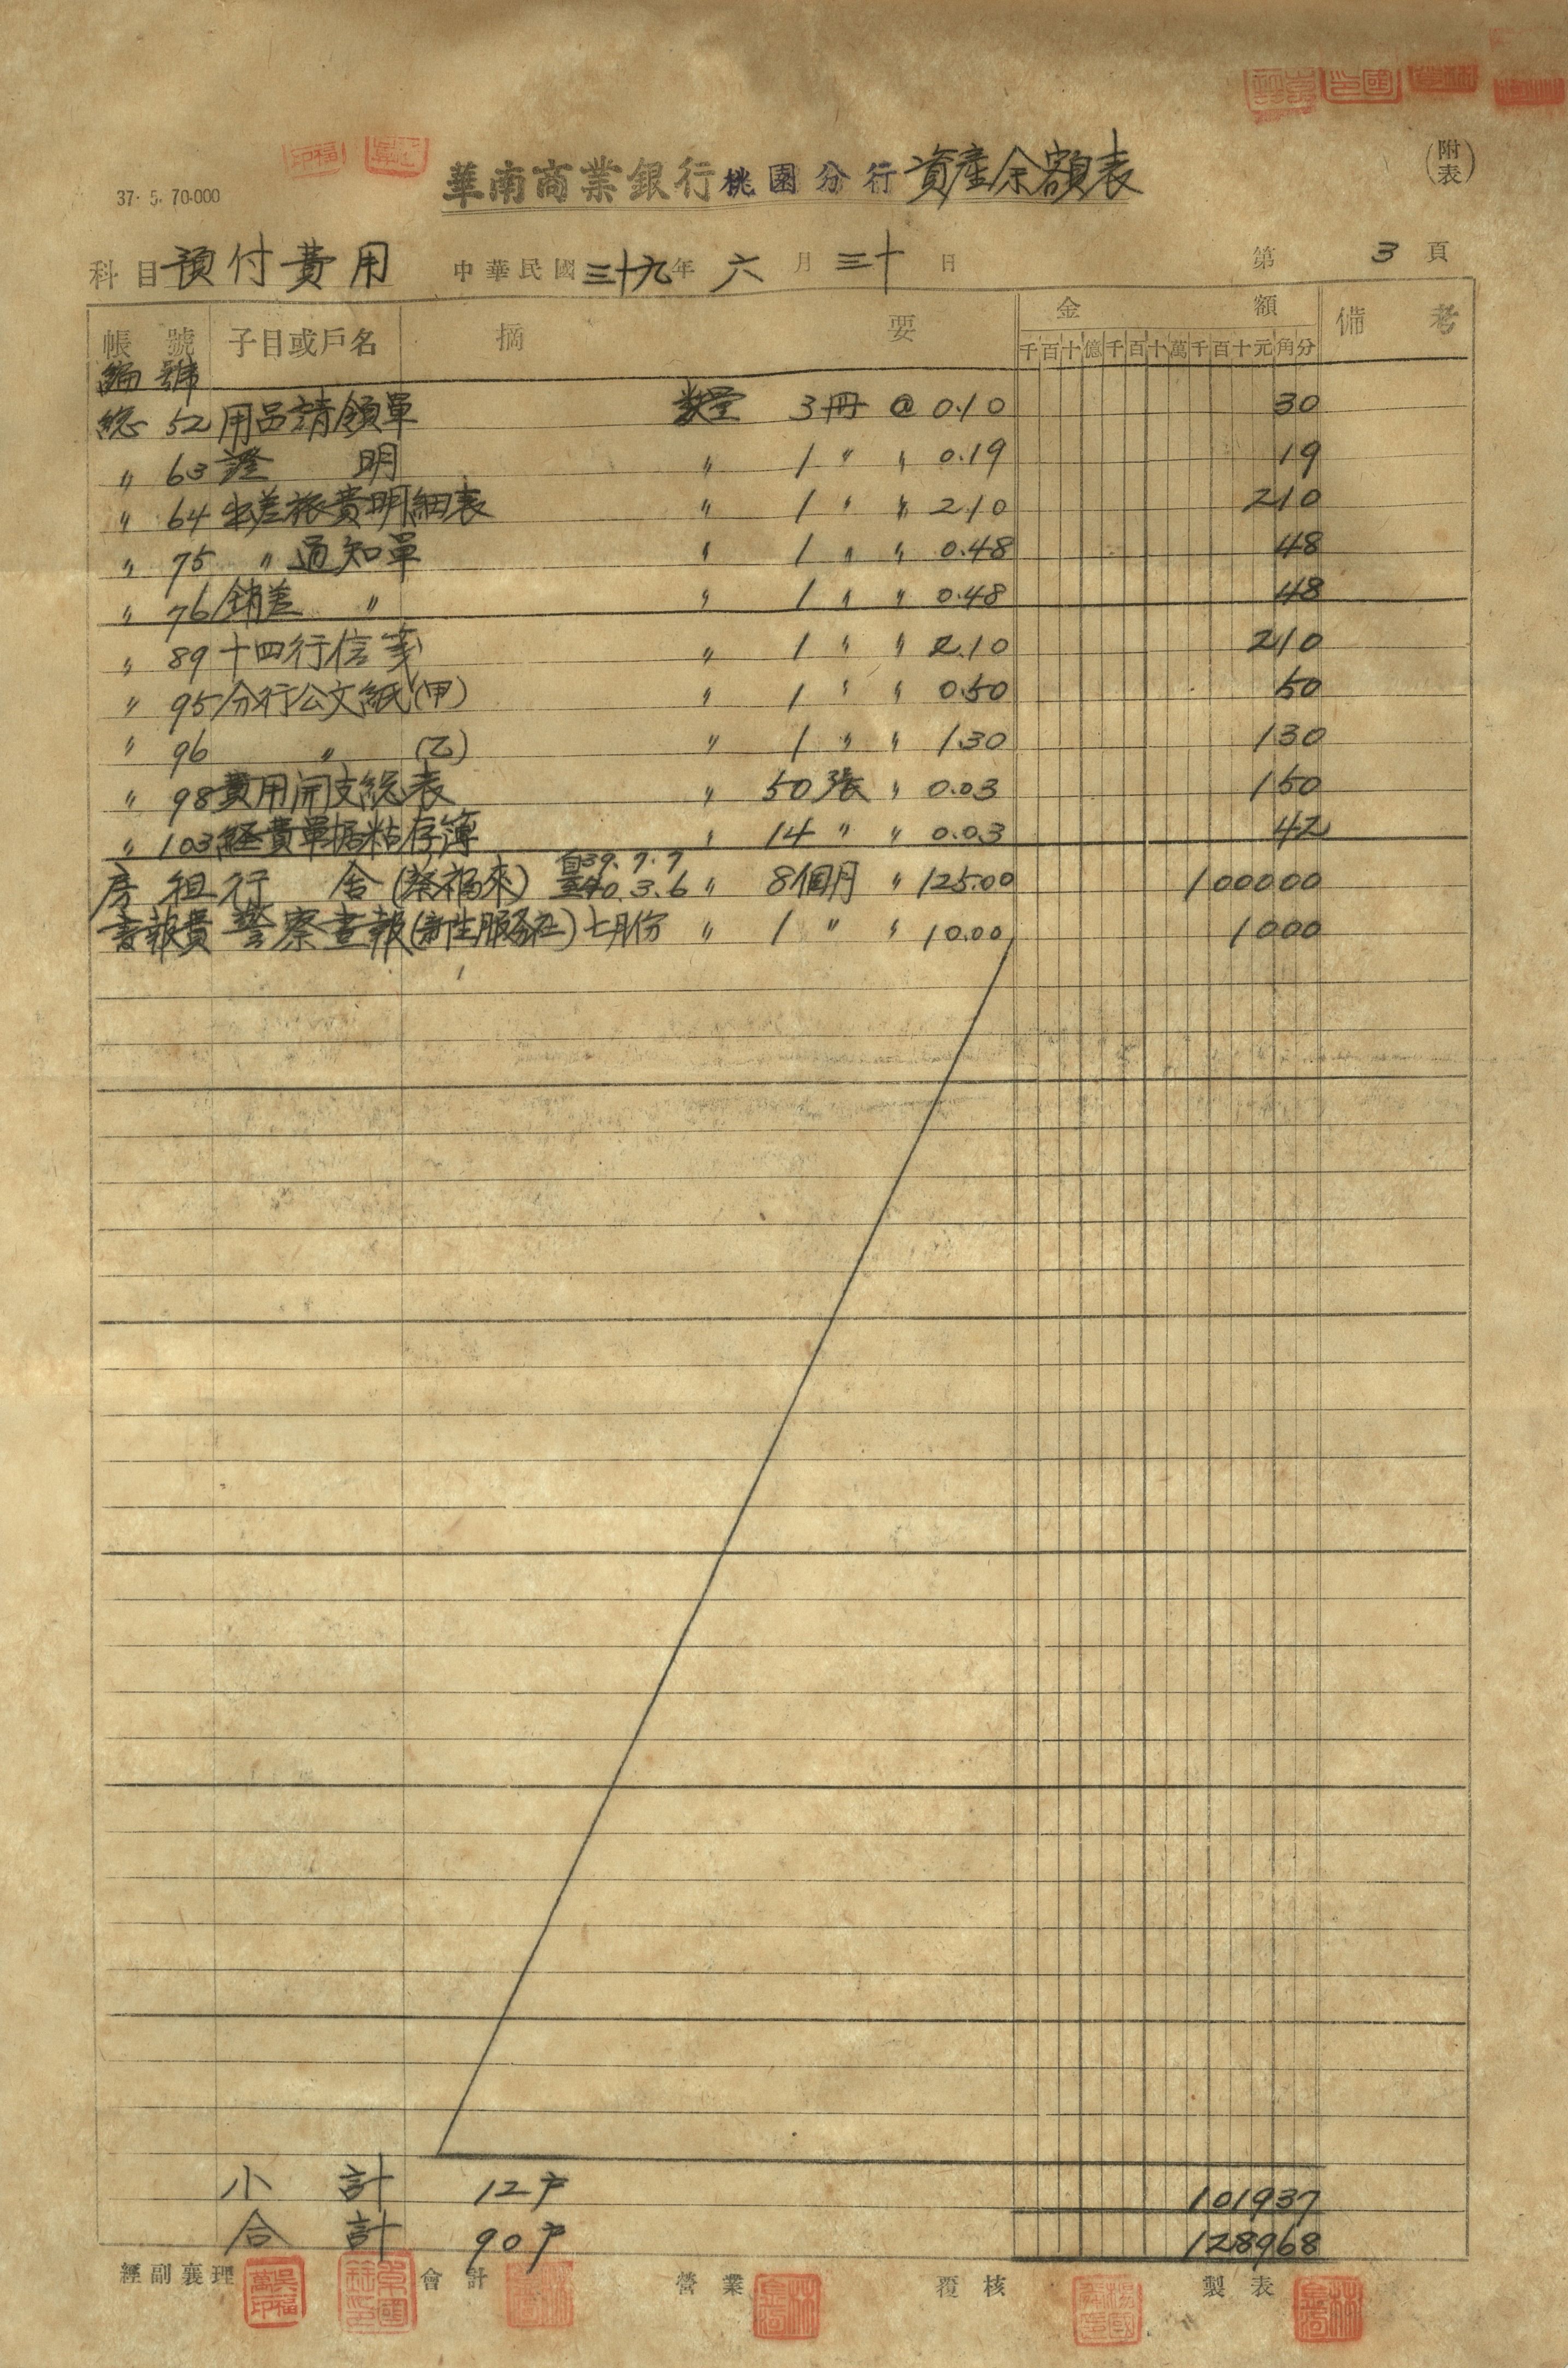 華南商業銀行桃園分行資產余額表
(附表)
37.5.70.000
科目預付費用 中華民國三十九年六月三十日 第3頁
帳號 子目或戶名 摘要 金額 備考
千百十億千百十萬千百十元角分
編號
総 52 用品請領單 数量 3冊 @ 0.10 30
〃 63 證明 〃 1 〃 〃 0.19 19
〃 64 出差旅費明細表 〃 1 〃 〃 2.10 210
〃 75 〃通知單 〃 1 〃 〃 0.48 48
〃 76 銷差 〃 〃 1 〃 〃 0.48 48
〃 89 十四行信箋 〃 1 〃 〃 2.10 210
〃 95 分行公文紙(甲) 〃 1 〃 〃 0.50 50
〃 96 〃 (乙) 〃 1 〃 〃 1.30 130
〃 98 費用開支総表 〃 50張 〃 0.03 150
〃 103 経費單据粘存簿 〃 14 〃 〃 0.03 42
房租 行舍(蔡福來) 自39.7.7至40.3.6 〃 8個月 〃 125.00 100000
書報費 警察畫報(新生服务社)七月份 〃 1 〃 〃 10.00 1000
小計 12戶 101937
合計 90戶 128968
經副襄理 會計 營業 覆核 製表
吳福萬印